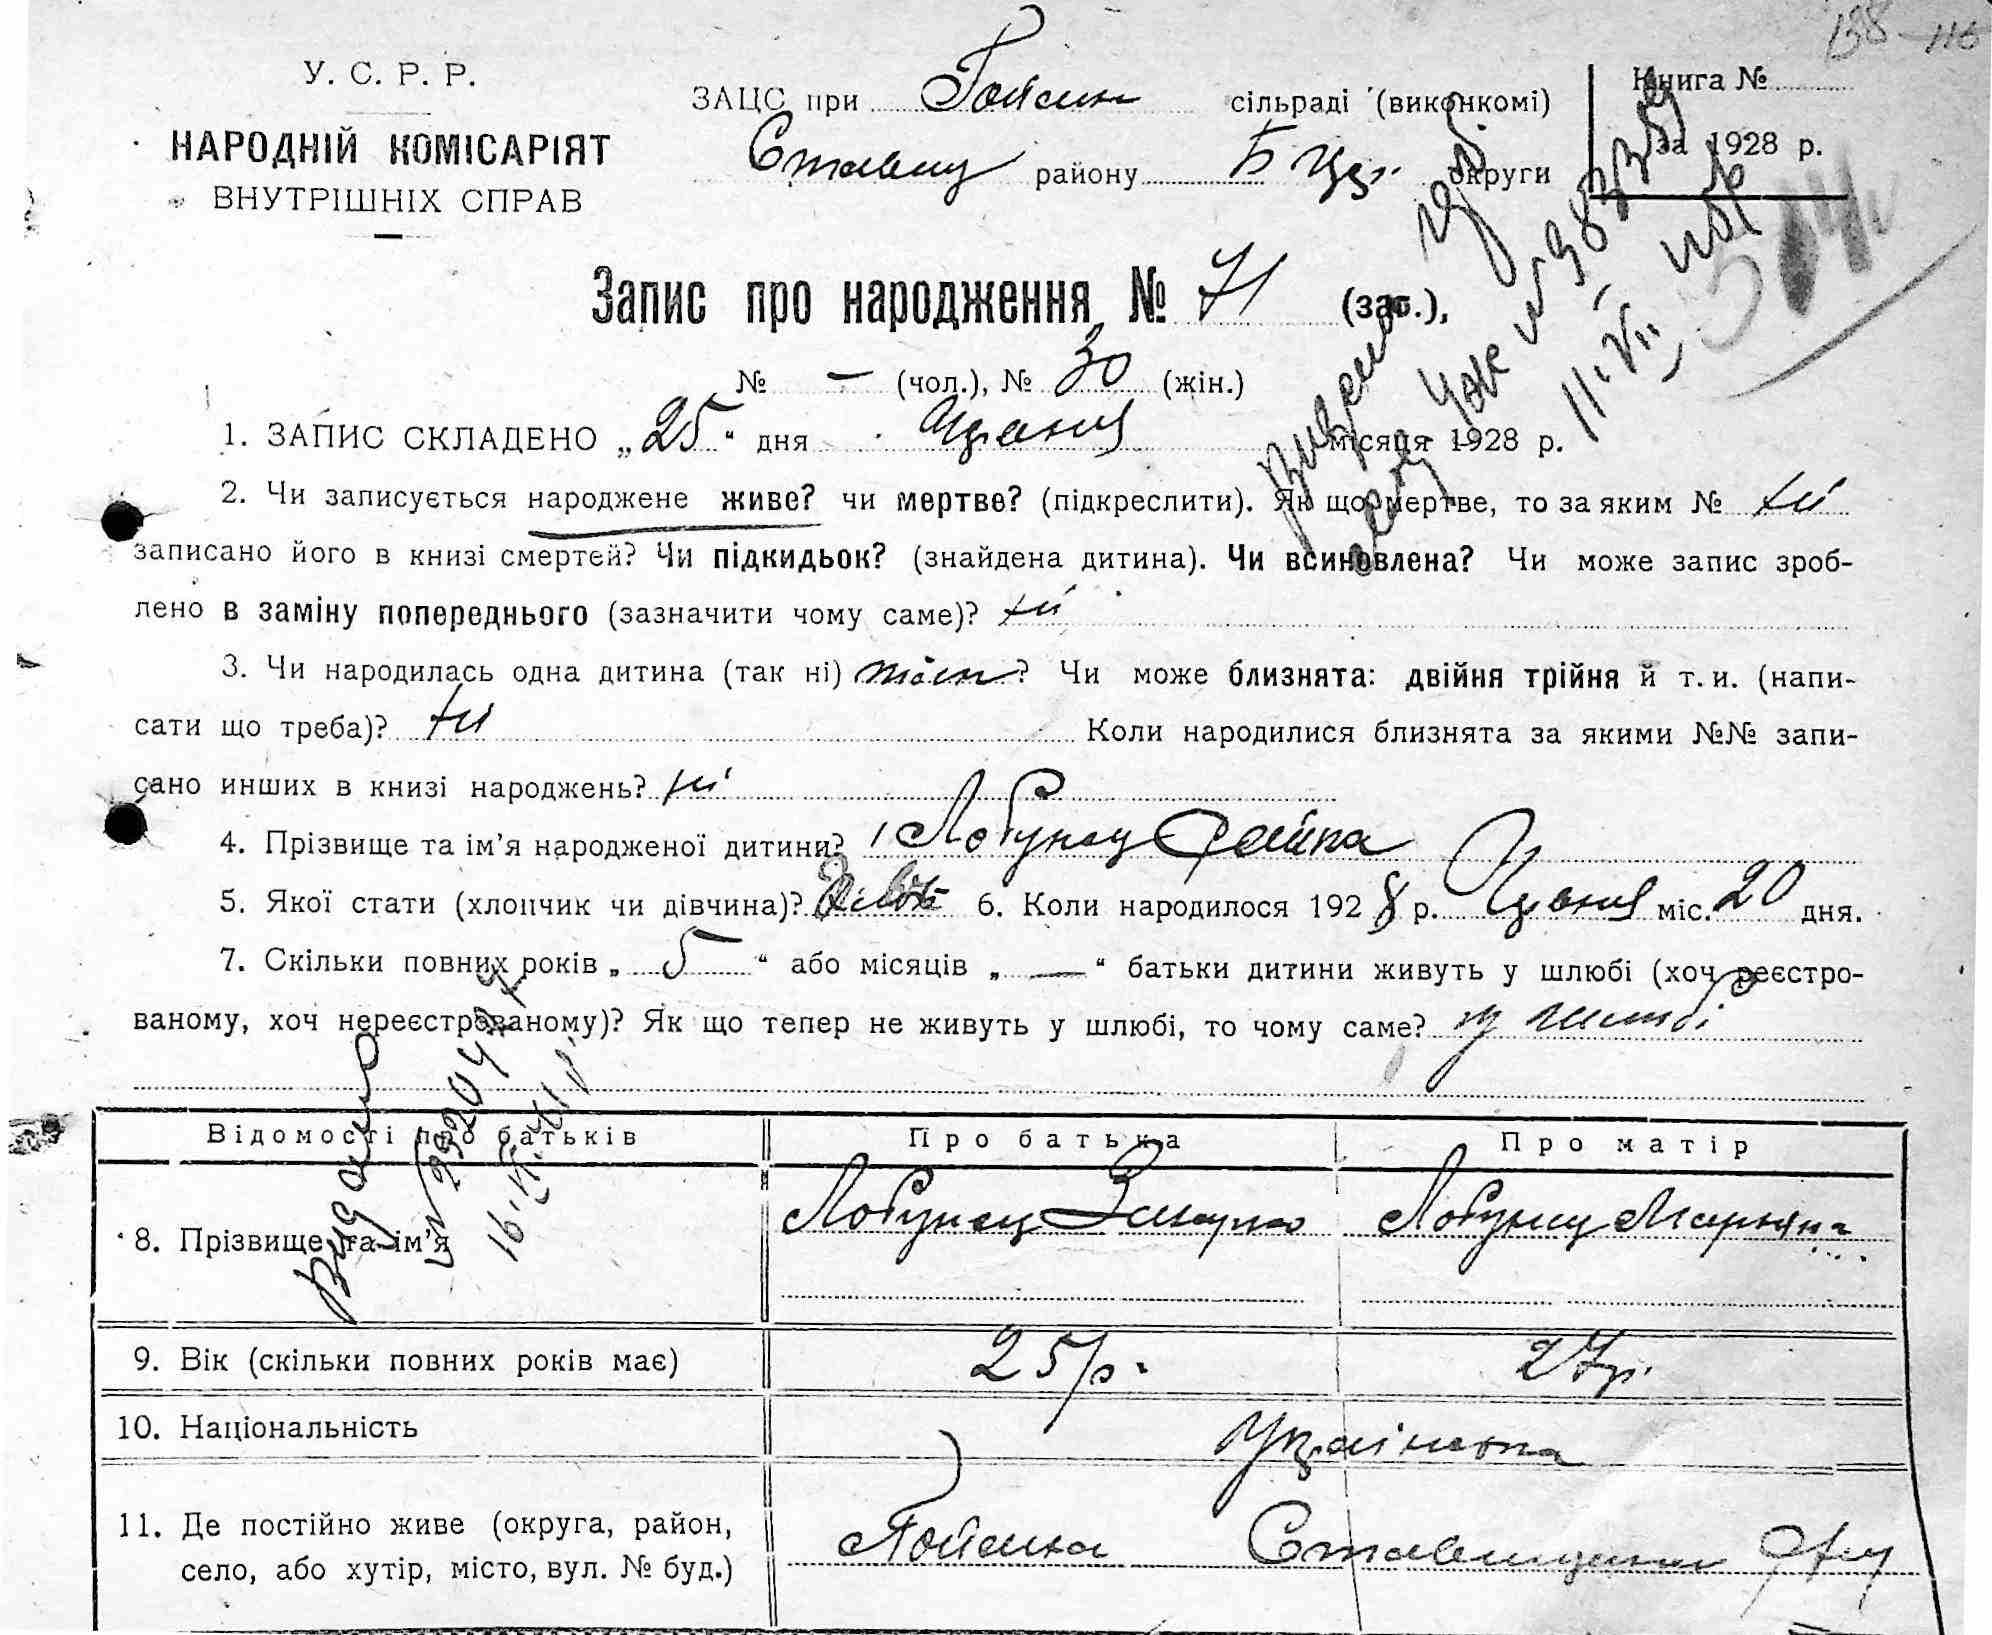 У. С. Р. Р.
НАРОДНІЙ КОМІСАРІЯТ
ВНУТРІШНІХ СПРАВ
ЗАЦС при сільраді (виконкомі)
району округи
Книга №
за 1928 р.
Запис про народження № 71 (заг.),
№ — (чол.), № 30 (жін.)
1. ЗАПИС СКЛАДЕНО „25“ дня місяця 1928 р.
2. Чи записується народжене живе? чи мертве? (підкреслити). Як що мертве, то за яким № ні
записано його в книзі смертей? Чи підкидьок? (знайдена дитина). Чи всиновлена? Чи може запис зроб-
лено в заміну попереднього (зазначити чому саме)? ні
3. Чи народилась одна дитина (так ні) так? Чи може близнята: двійня трійня й т. и. (напи-
сати що треба)? ні Коли народилися близнята за якими №№ запи-
сано инших в книзі народжень? ні
4. Прізвище та ім’я народженої дитини? Лобунец
5. Якої стати (хлопчик чи дівчина)? 6. Коли народилося 1928 р. міс. 20 дня.
7. Скільки повних років „5“ або місяців „—“ батьки дитини живуть у шлюбі (хоч реєстро-
ваному, хоч нереєстрованому)? Як що тепер не живуть у шлюбі, то чому саме? у шлюбі
Відомості про батьків Про батька Про матір
8. Прізвище та ім’я Лобунец Лобунец
9. Вік (скільки повних років має) 25 р. 27 р.
10. Національність Українська
11. Де постійно живе (округа, район,
село, або хутір, місто, вул. № буд.)